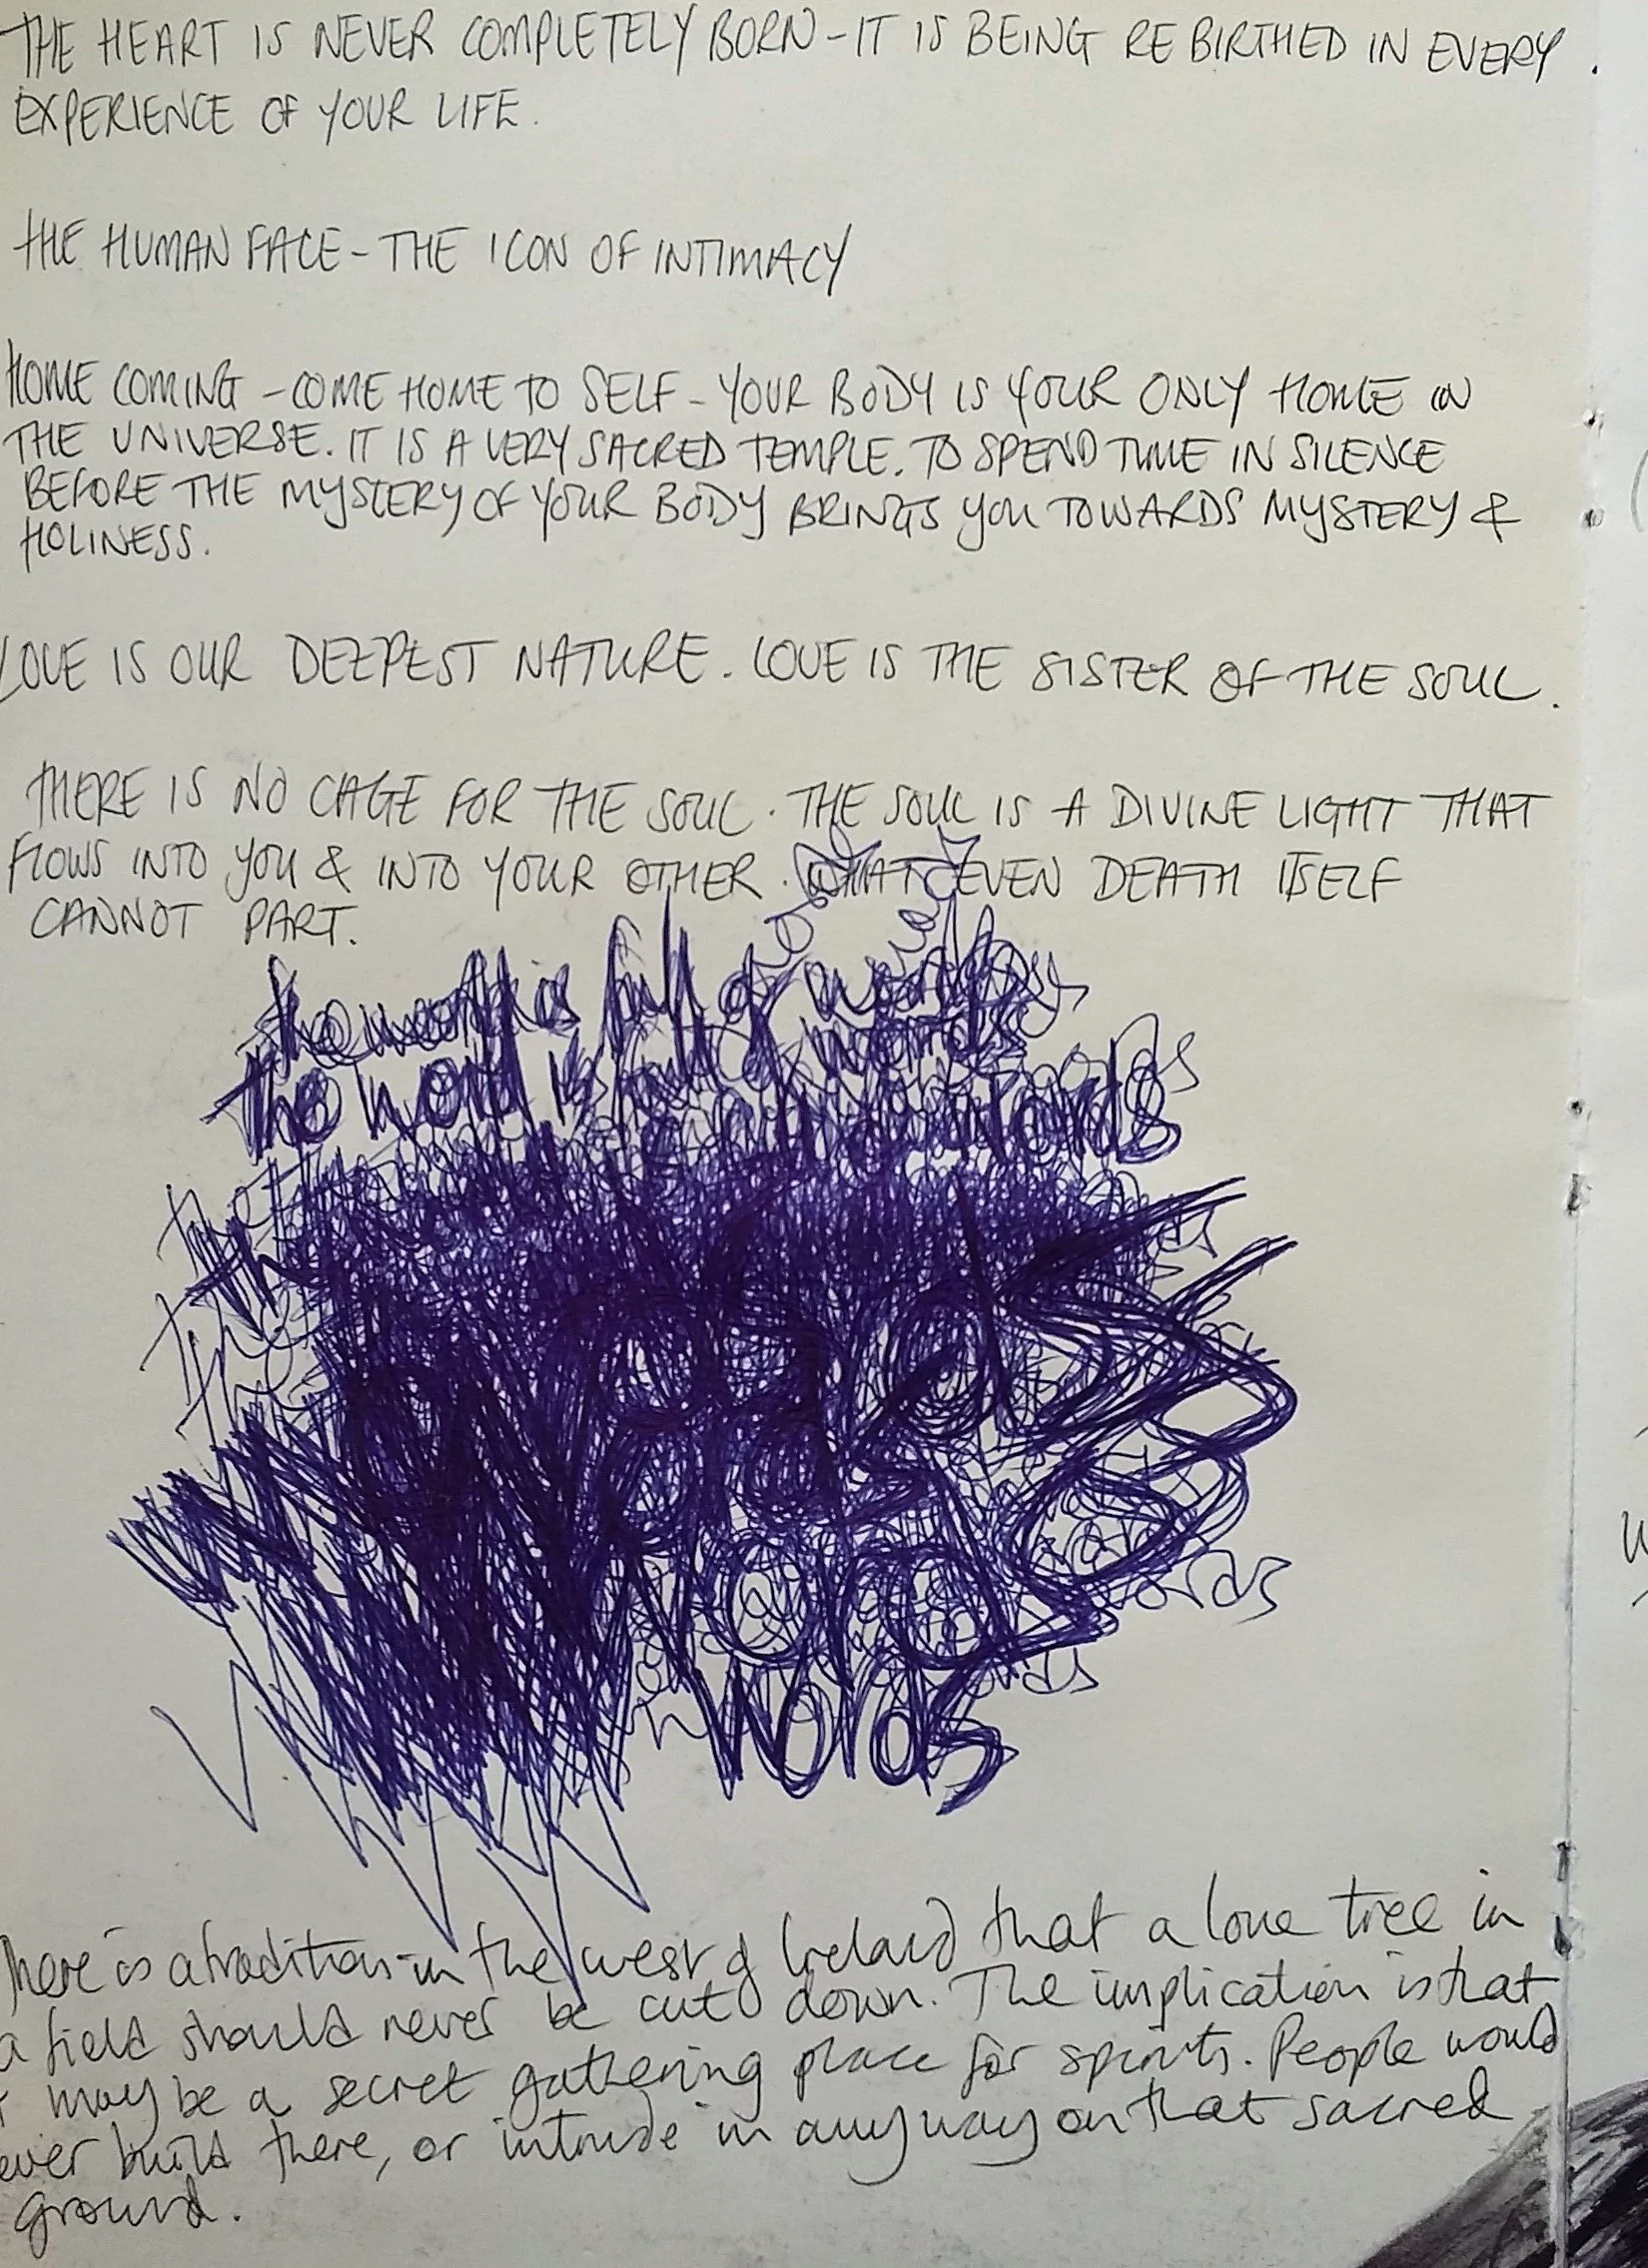 THE HEART IS NEVER COMPLETELY BORN - IT IS BEING RE BIRTHED IN EVERY
EXPERIENCE OF YOUR LIFE.
THE HUMAN FACE - THE ICON OF INTIMACY
HOME COMING - COME HOME TO SELF - YOUR BODY IS YOUR ONLY HOME IN
THE UNIVERSE. IT IS A VERY SACRED TEMPLE. TO SPEND TIME IN SILENCE
BEFORE THE MYSTERY OF YOUR BODY BRINGS YOU TOWARDS MYSTERY &
HOLINESS.
LOVE IS OUR DEEPEST NATURE. LOVE IS THE SISTER OF THE SOUL.
THERE IS NO CAGE FOR THE SOUL. THE SOUL IS A DIVINE LIGHT THAT
FLOWS INTO YOU & INTO YOUR OTHER. WHAT EVEN DEATH ITSELF
CANNOT PART.
the world is full of words
the world is full of words
words
words
words
There is a tradition in the west of Ireland that a lone tree in
a field should never be cut down. The implication is that
may be a secret gathering place for spirits. People would
ever build there, or intrude in any way on that sacred
ground.